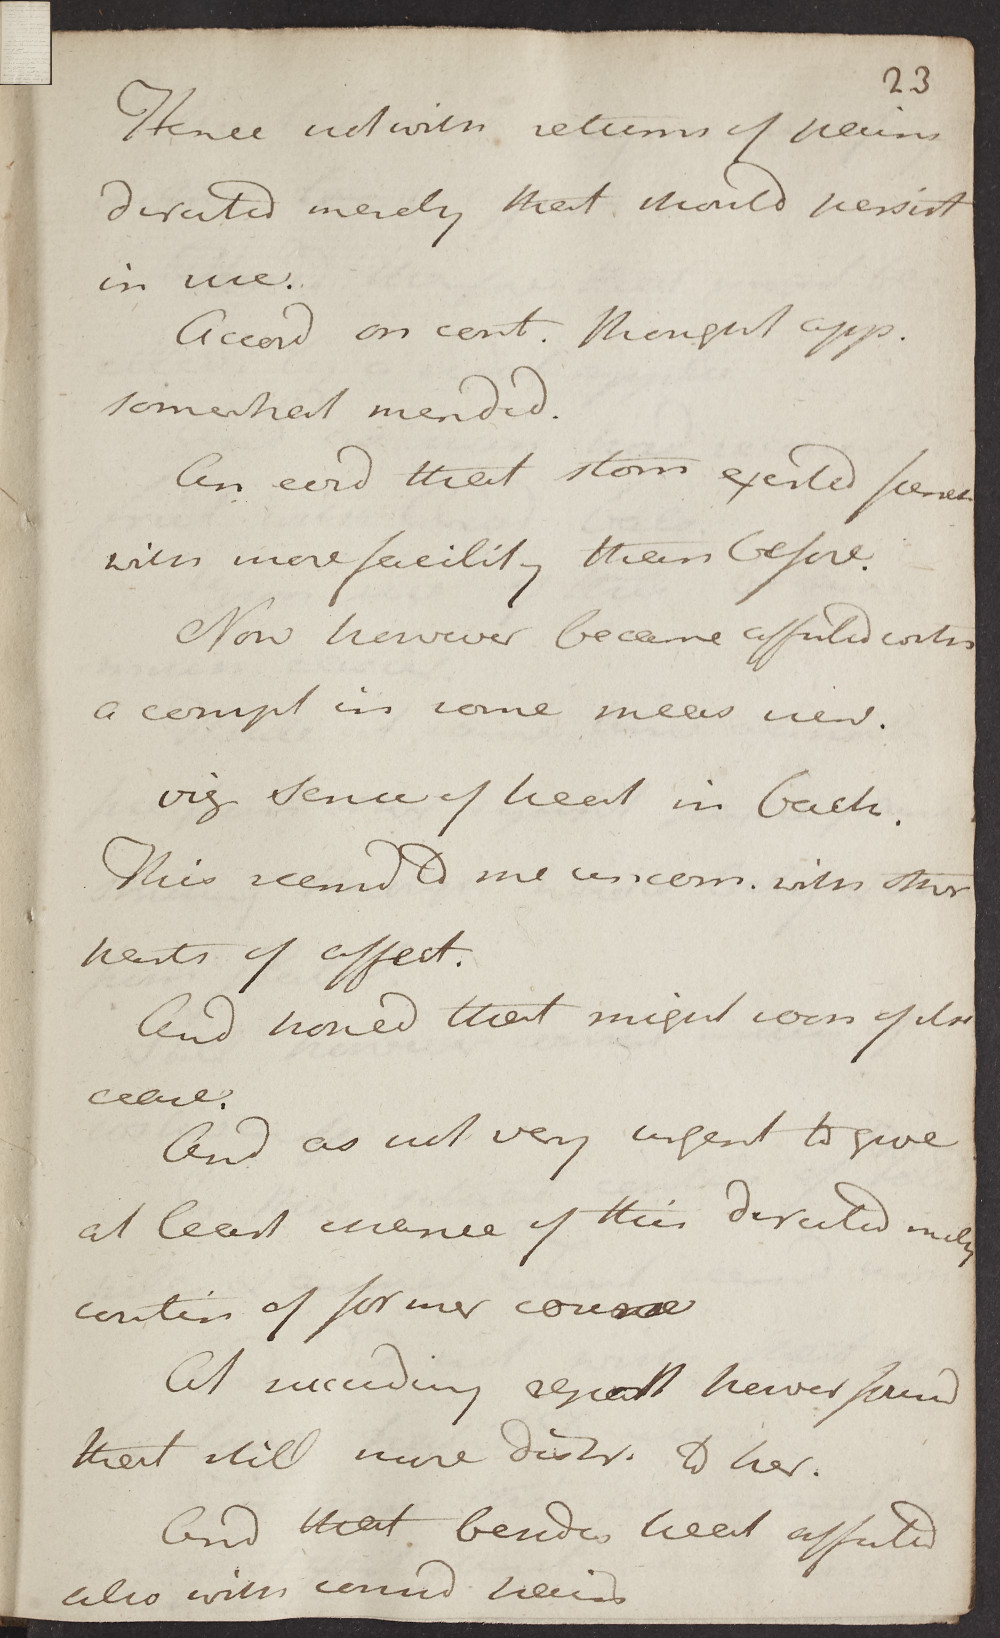 23
Hence notwith returns of pains
directed merely that should persist
in use.
Accord on cont. thought app.
somewhat mended.
An cord that stom exerted
with more facility than before.
Now however became affected with
a compt in some meas new.
viz sense of heat in back.
This seemd to me unconn. with other
parts of affect.
And hoped that might soon of itse
cease.
And as not very urgent to give
at least chance of this directed mely
contin of former course
At succeeding report however found
that still more distr. to her.
And that besides heat affected
also with considr pains